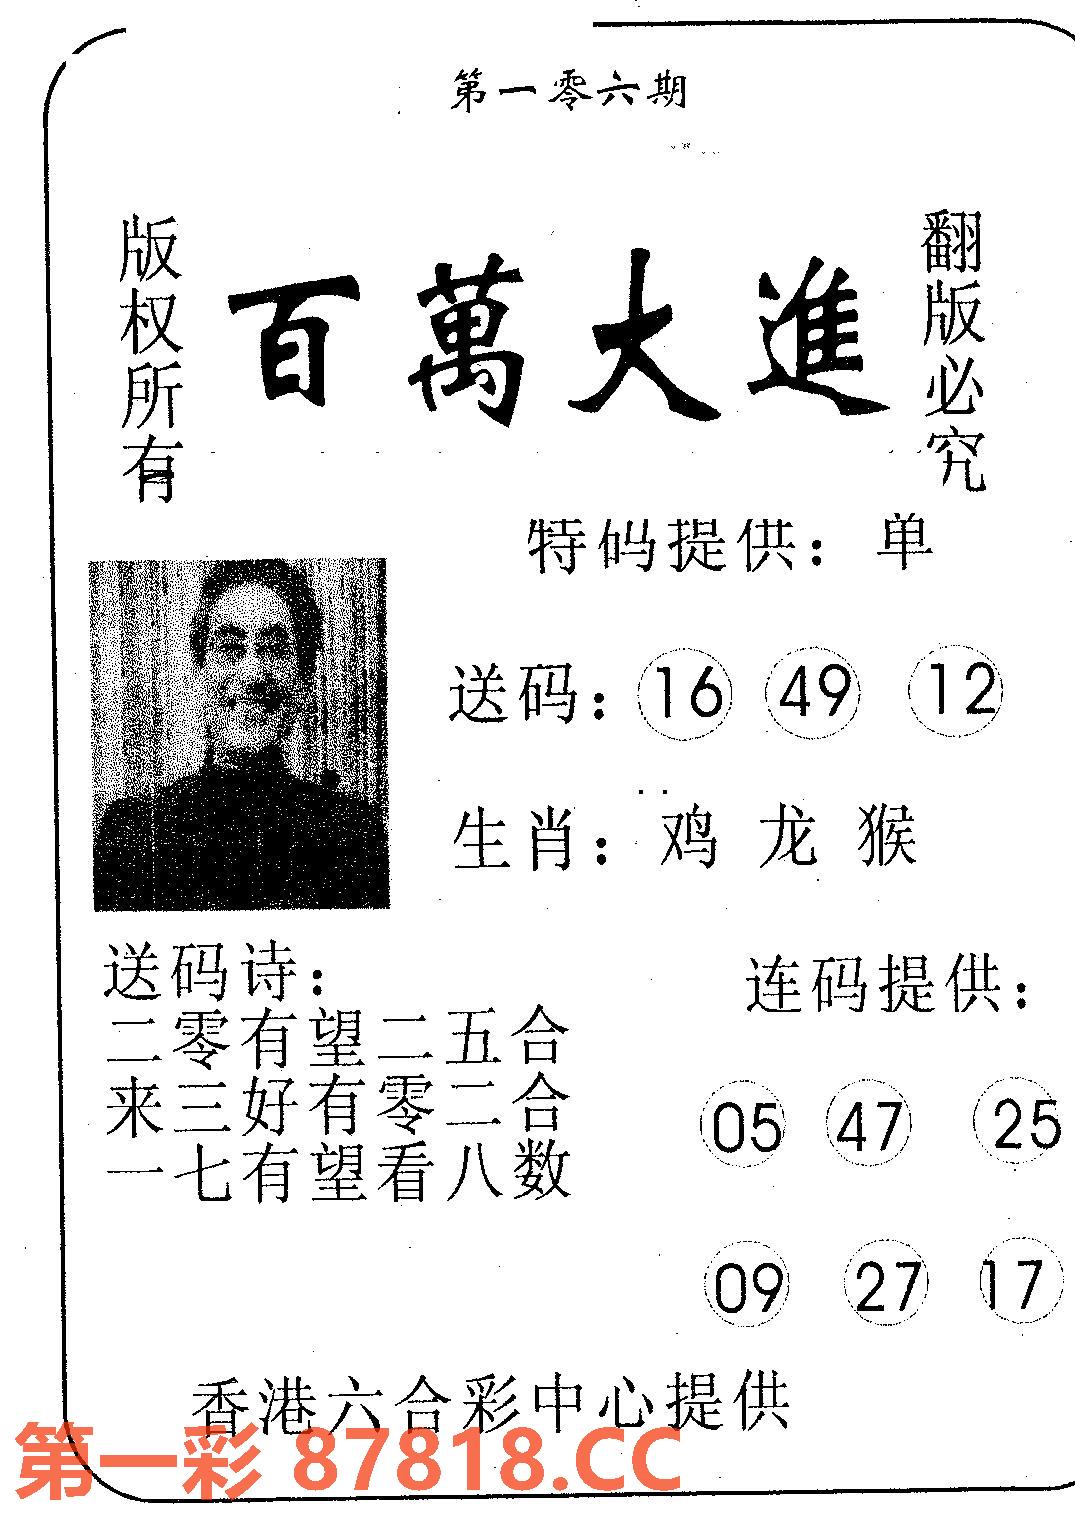 第一零六期
版权所有
百萬大進
翻版必究
特码提供：单
送码：16 49 12
生肖：鸡 龙 猴
送码诗：
二零有望二五合
来三好有零二合
一七有望看八数
连码提供：
05 47 25
09 27 17
香港六合彩中心提供
第一彩 87818.CC